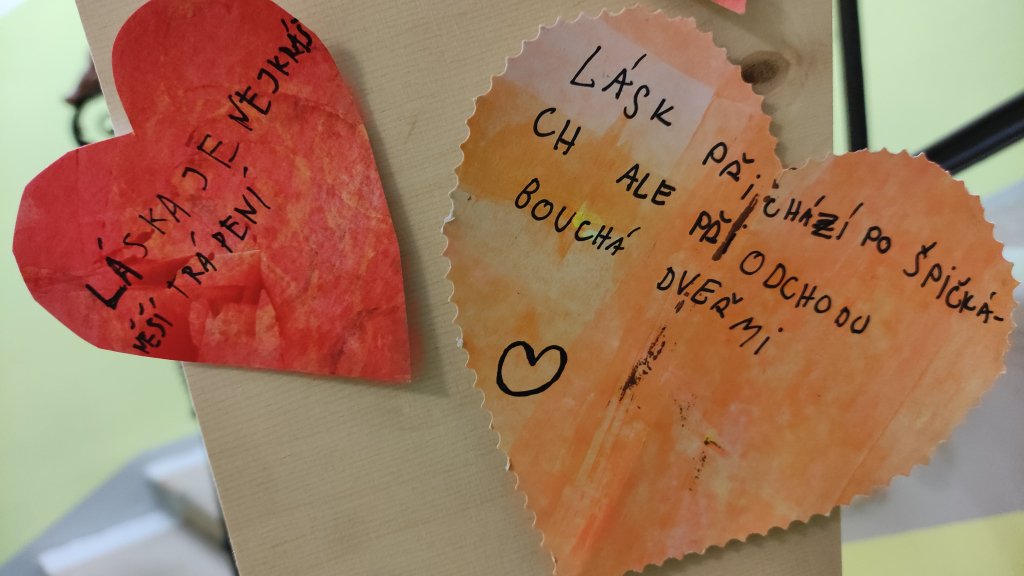 LÁSKA JE NEJKRÁS
NĚŠÍ TRÁPENÍ
LÁSK PŘICHÁZÍ PO ŠPIČKÁ-
CH ALE PŘI ODCHODU
BOUCHÁ DVEŘMI